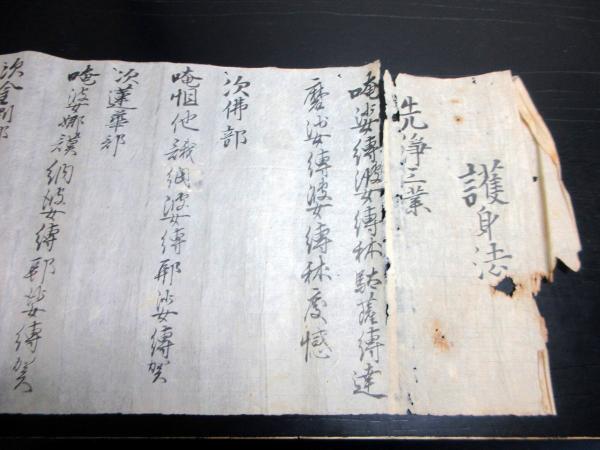 護身法
先淨三業
唵娑縛婆縛秫駄薩縛達
磨娑縛婆縛秫度憾
次佛部
唵怛他誐納婆縛耶娑縛賀
次蓮華部
唵婆娜謨納婆縛耶娑縛賀
次金剛部